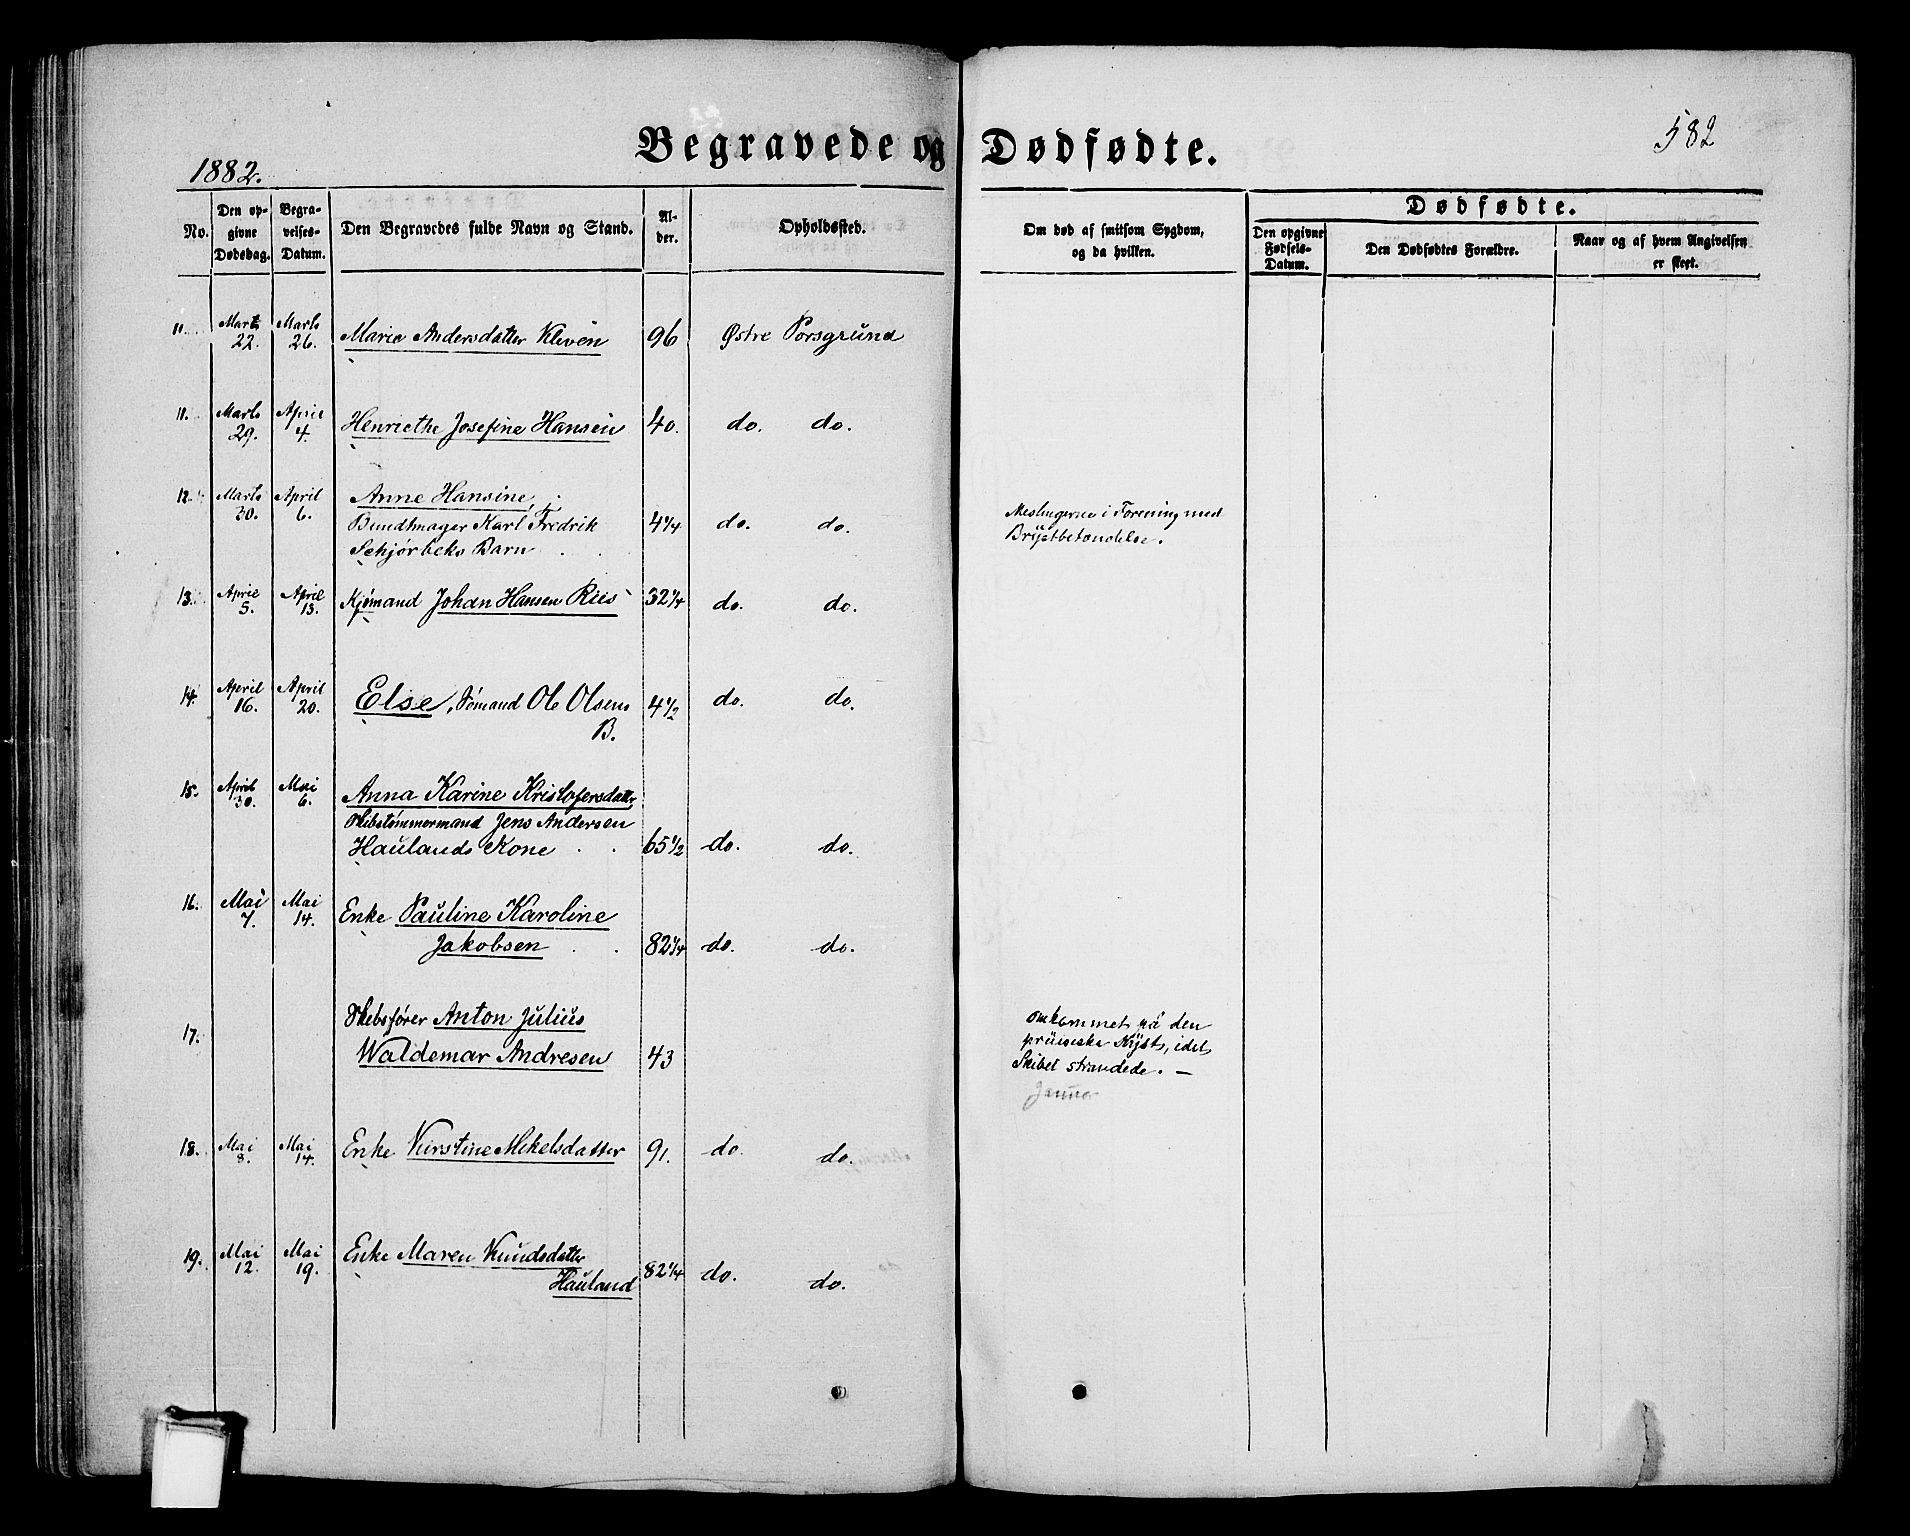 1882.
Begravede og Dødfødte.
582
No.
Den opgivne Dødsdag.
Begravelses-Datum.
Den Begravedes fulde Navn og Stand.
Alder.
Opholdssted.
Om død af smitsom Sygdom, og da hvilken.
Dødfødte.
Den opgivne Fødsels-Datum.
Den Dødfødtes Forældre.
Naar og af hvem Angivelsen er skeet.
11. Marts 22. Marts 26. Marie Andersdatter Kleven 96 Østre Porsgrund
11. Marts 29. April 4. Henriethe Josefine Hansen 40. do. do.
12. Marts 30. April 6. Anne Hansine,
Bundtmager Karl Fredrik
Schjørbeks Barn 4 1/4 do. do.
Meslingerne i Forening med
Brystbetændelse.
13. April 5. April 13. Kjømand Johan Hansen Riis 32 1/4 do. do.
14. April 16. April 20. Else, Sømand Ole Olsens
B. 4 1/2 do. do.
15. April 30. Mai 6. Anna Karine Kristofersdatter,
Skibstømmermand Jens Andersen
Haulands Kone 65 1/2 do. do.
16. Mai 7. Mai 14. Enke Pauline Karoline
Jakobsen 82 1/4 do. do.
17. Skibsfører Anton Julius
Waldemar Andresen 43
omkommet på den
prüsiske Kyst, idet
Skibet strandede. —
Januar
18. Mai 8. Mai 14. Enke Kirstine Mikelsdatter 91. do. do.
19. Mai 12. Mai 19. Enke Maren Knudsdatter
Hauland 82 1/4 do. do.